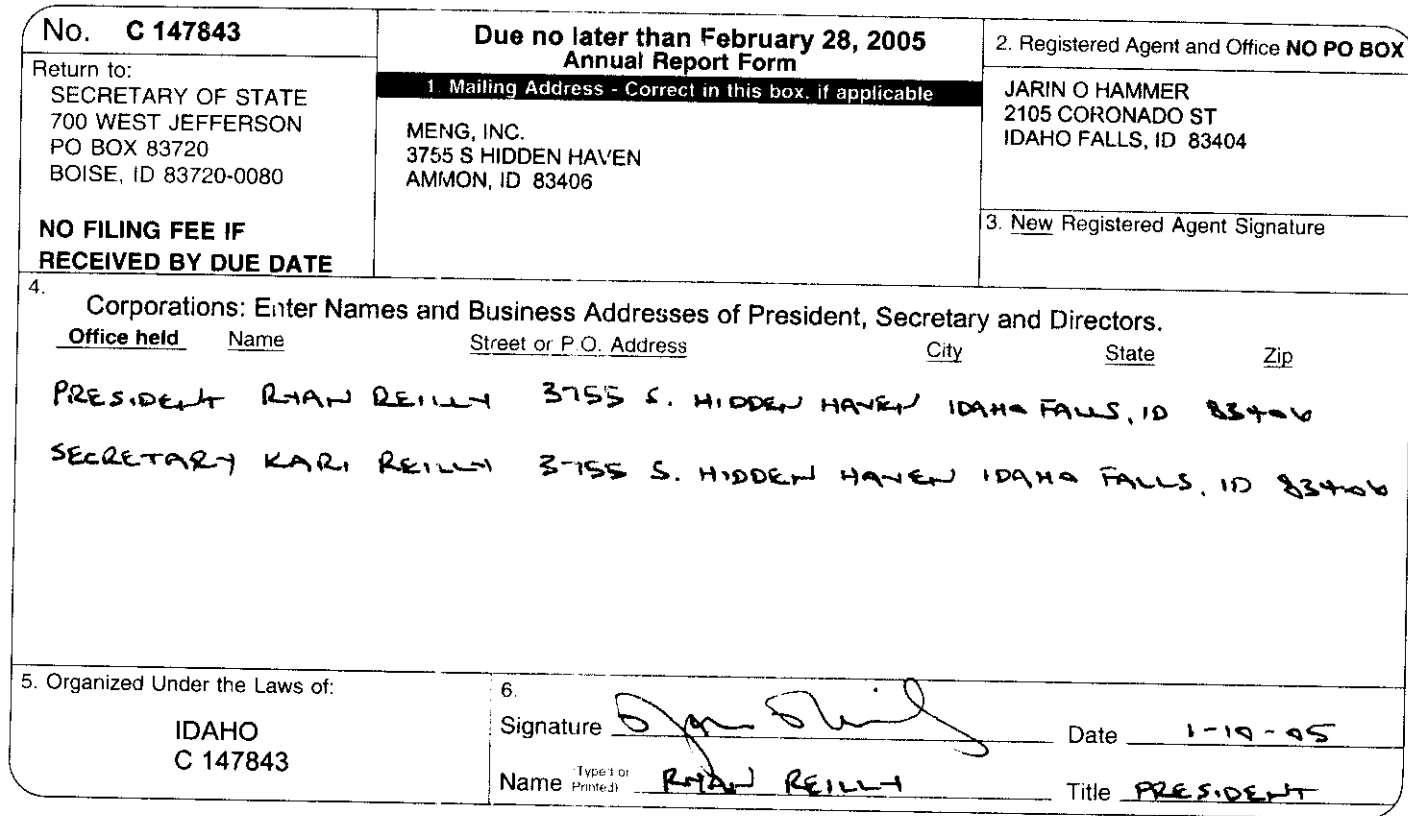 No. C 147843
Return to:
SECRETARY OF STATE
700 WEST JEFFERSON
PO BOX 83720
BOISE, ID 83720-0080
NO FILING FEE IF
RECEIVED BY DUE DATE
Due no later than February 28, 2005
Annual Report Form
1. Mailing Address - Correct in this box, if applicable
MENG, INC.
3755 S HIDDEN HAVEN
AMMON, ID 83406
2. Registered Agent and Office NO PO BOX
JARIN O HAMMER
2105 CORONADO ST
IDAHO FALLS, ID 83404
3. New Registered Agent Signature
4.
Corporations: Enter Names and Business Addresses of President, Secretary and Directors.
Office held Name Street or P.O. Address City State Zip
PRESIDENT RYAN REILLY 3755 S. HIDDEN HAVEN IDAHO FALLS, ID 83406
SECRETARY KARI REILLY 3755 S. HIDDEN HAVEN IDAHO FALLS, ID 83406
5. Organized Under the Laws of:
IDAHO
C 147843
6.
Signature Ryan Reilly Date 1-10-05
Name (Typed or Printed) RYAN REILLY Title PRESIDENT